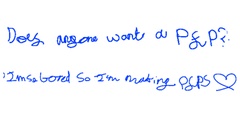 Does anyone want a P£P?
Imsobored so I'm making P£PS♡